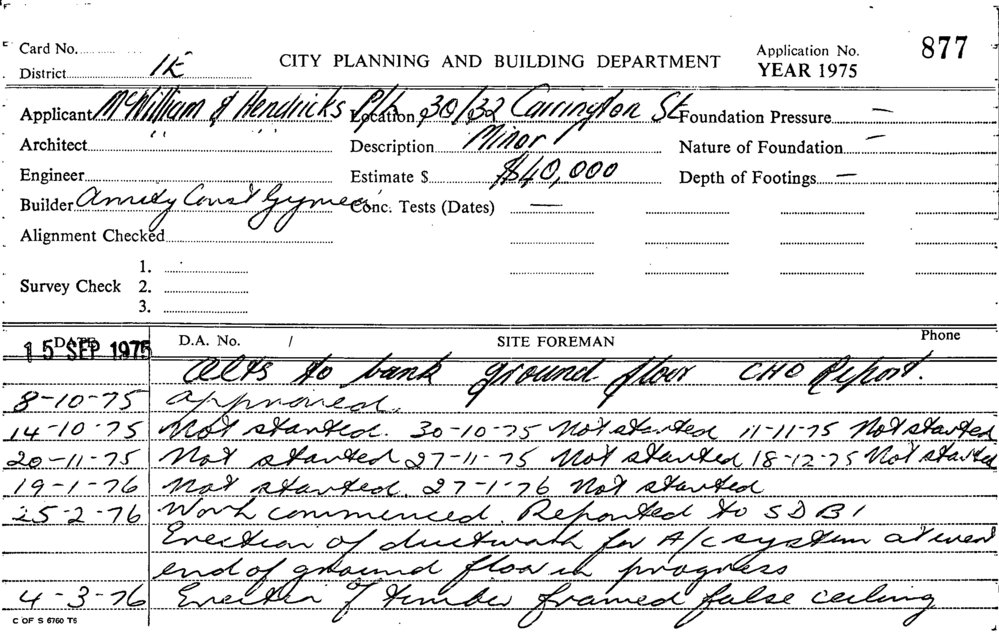 Card No.
District 1E
CITY PLANNING AND BUILDING DEPARTMENT
Application No. 877
YEAR 1975
Applicant McWilliam & Hendricks P/L Location 30/32 Carrington St Foundation Pressure —
Architect " " Description Minor Nature of Foundation —
Engineer Estimate $ $40,000 Depth of Footings —
Builder Const Gymea Conc. Tests (Dates) —
Alignment Checked
Survey Check 1.
2.
3.
DATE D.A. No. / SITE FOREMAN Phone
15 SEP 1975
Alts to bank ground floor CHO Report.
8-10-75 Approved.
14-10-75 Not started. 30-10-75 Not started 11-11-75 Not started
20-11-75 Not started 27-11-75 Not started 18-12-75 Not started
19-1-76 Not started. 27-1-76 Not started
25-2-76 Work commenced. Reported to SDBI
Erection of ductwork for A/C system at west
end of ground floor in progress
4-3-76 Erection of timber framed false ceiling
C OF S 6760 T6